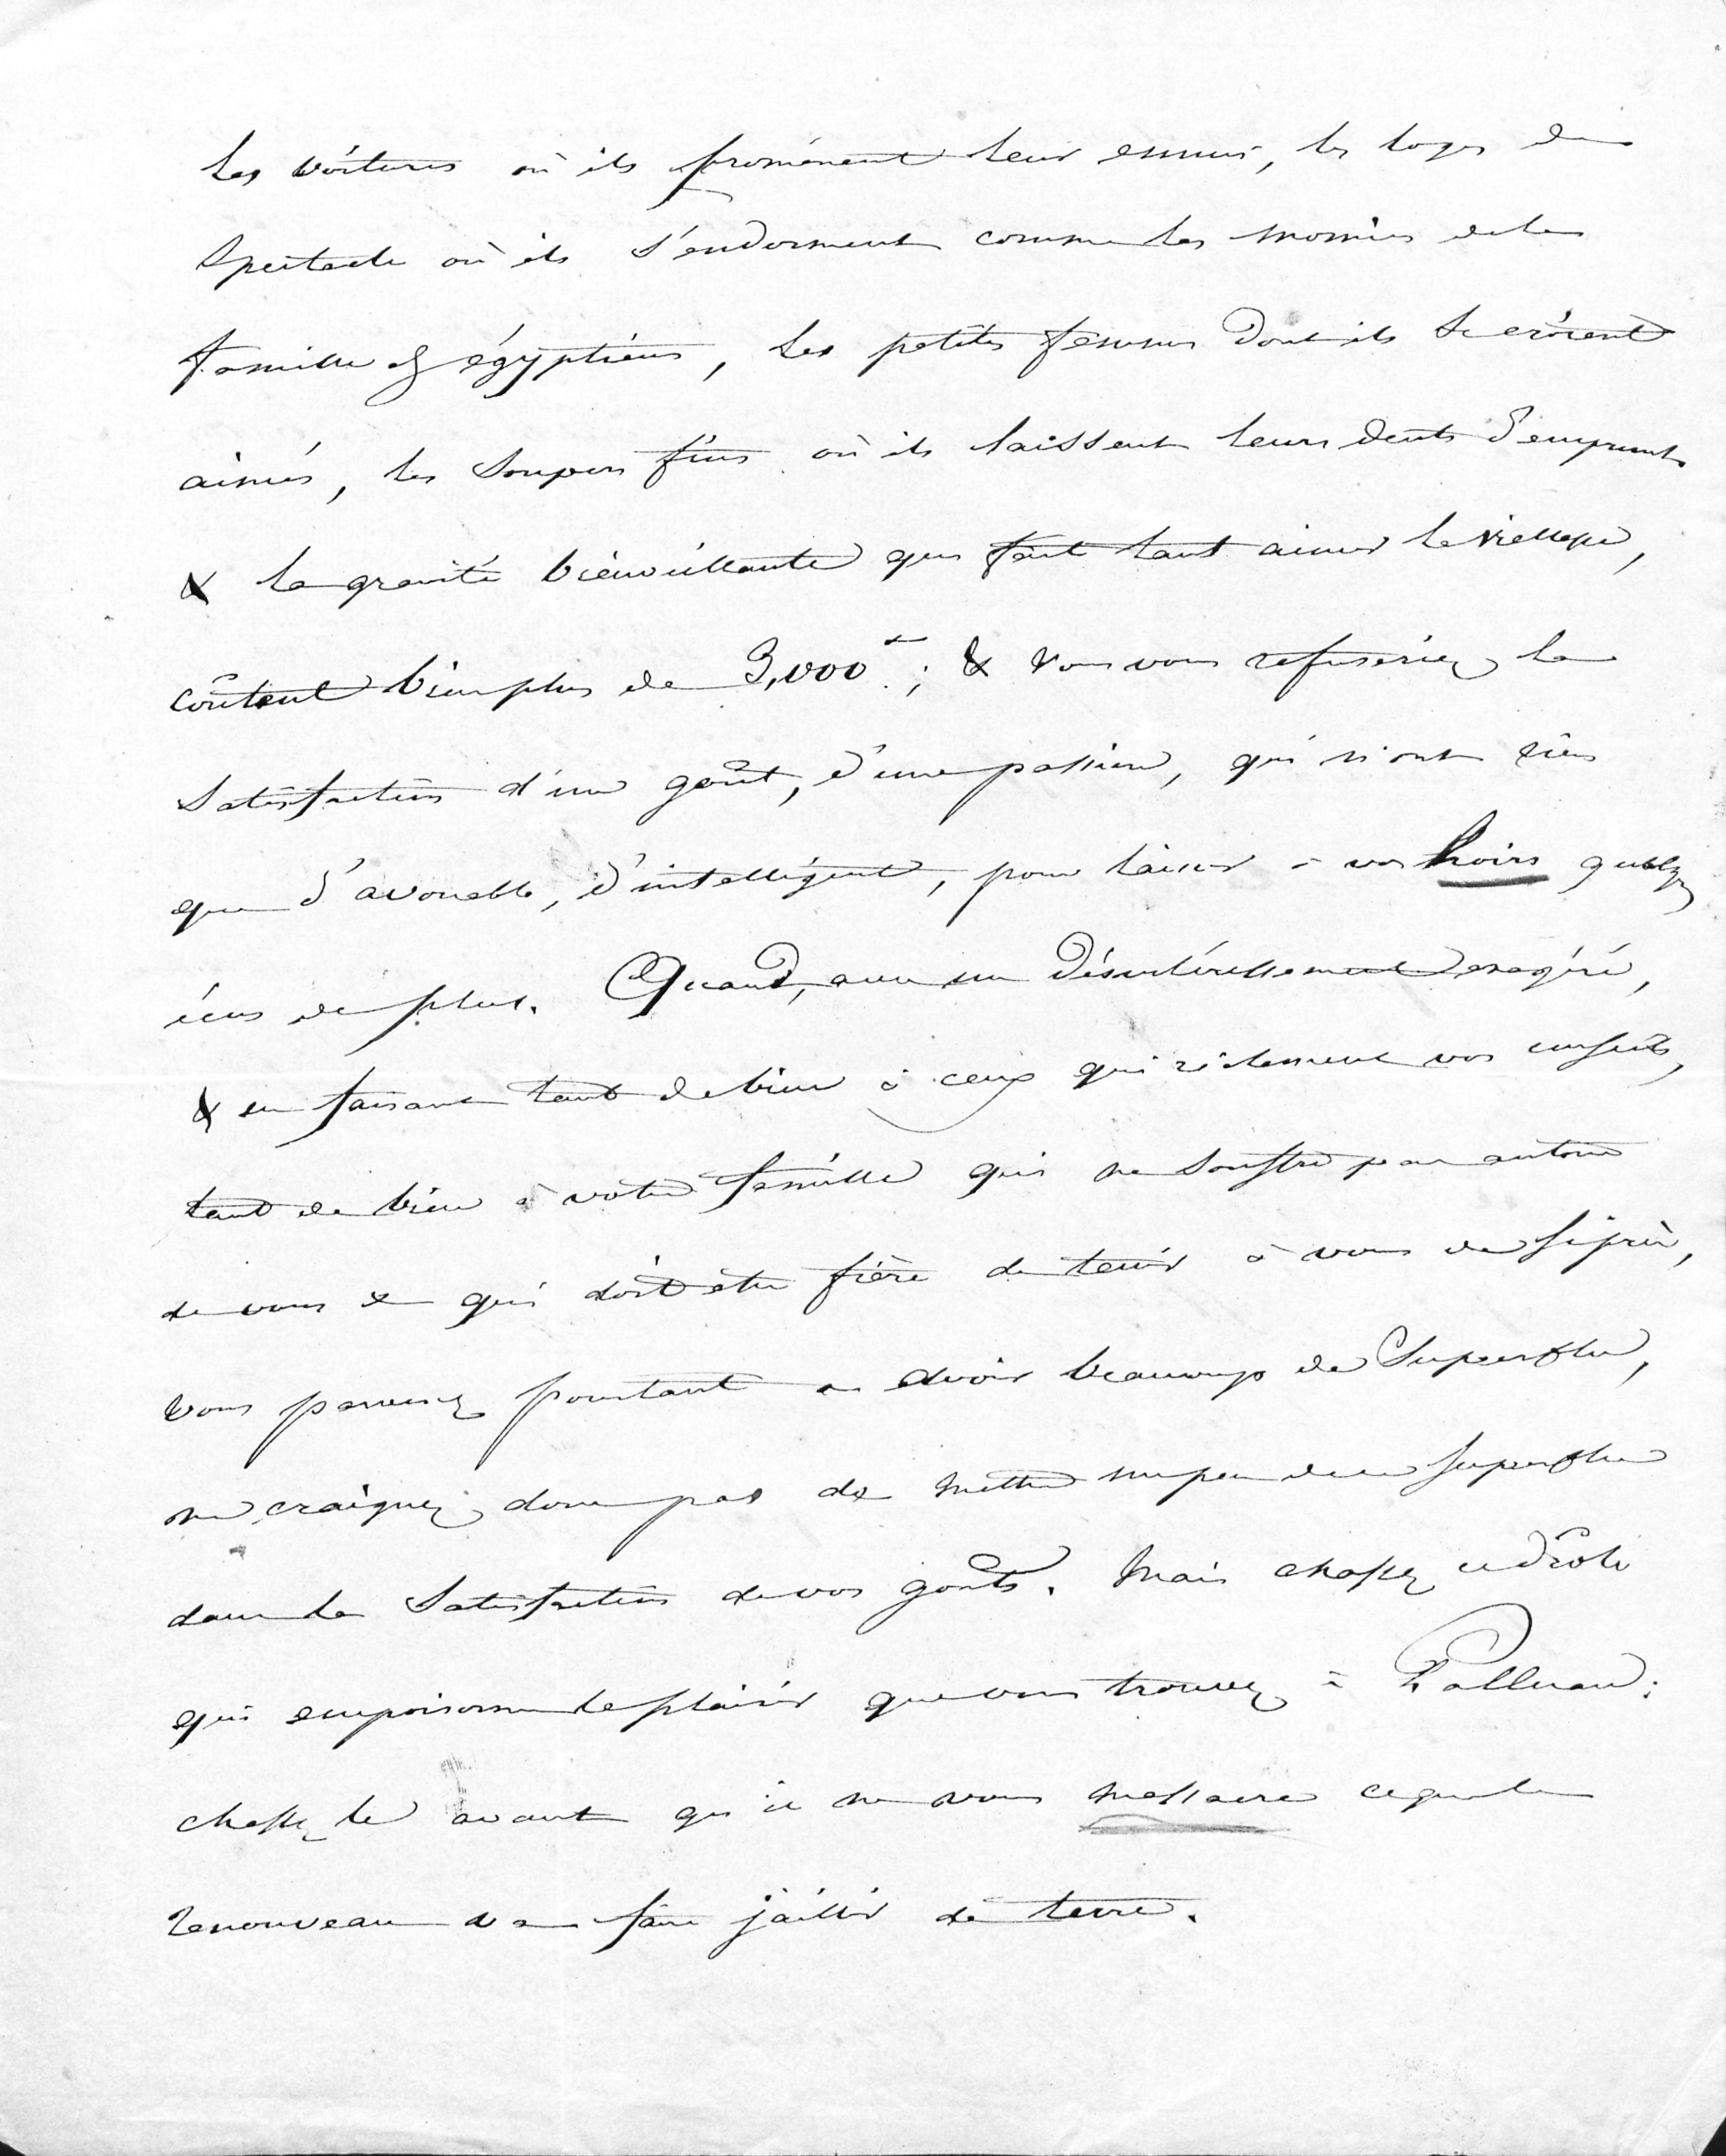 les voitures où ils promènent leur ennui, les loges de
spectacle où ils s'endorment comme les momies de la
famille des égyptiens, les petites femmes dont ils se croient
aimés, les soupers fins où ils laissent leurs dents d'emprunt
& la gravité bienveillante qui fait tant aimer la vieillesse,
coûtent bien plus de 3,000 ; & vous vous refuseriez la
satisfaction d'un goût, d'une passion, qui n'ont rien
que d'avouable, d'intelligent, pour laisser à vos hoirs quelqs
écus de plus. Quand, avec un désintéressement exagéré,
& en faisant tant de bien à ceux qui réclament vos conseils,
tant de bien à votre famille qui ne souffre pas autour
de vous & qui doit être fière de tenir à vous de si près,
vous parvenez pourtant à avoir beaucoup de superflu,
ne craignez donc pas de mettre un peu de ce superflu
dans la satisfaction de vos goûts. Mais chassez ce drôle
qui empoisonne le plaisir que vous trouvez à Palluau :
chassez le avant qu'il ne vous massacre ce que le
renouveau va faire jaillir de terre.